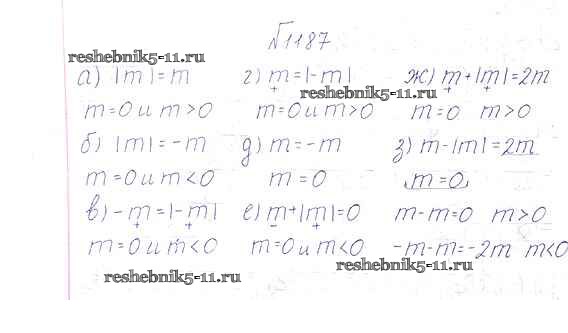 №1187
reshebnik5-11.ru
а) |m|=m г) m=|-m| ж) m+|m|=2m
reshebnik5-11.ru
m=0 и m>0 m=0 и m>0 m=0 m>0
б) |m|=-m д) m=-m з) m-|m|=2m
m=0 и m<0 m=0 m=0
в) -m=|-m| е) m+|m|=0 m-m=0 m>0
m=0 и m<0 m=0 и m<0 -m-m=-2m m<0
reshebnik5-11.ru
reshebnik5-11.ru